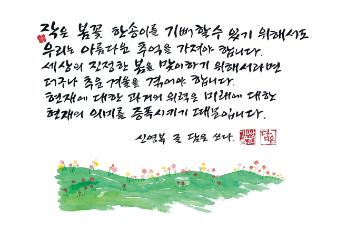 작은 봄꽃 한송이를 기뻐할 수 있기 위해서도
우리는 아름다운 추억을 가져야 합니다.
세상의 진정한 봄을 맞이하기 위해서라면
더구나 추운 겨울을 겪어야 합니다.
현재에 대한 과거의 위력은 미래에 대한
현재의 의지를 증폭시키기 때문입니다.
신영복 글 담오 쓰다.